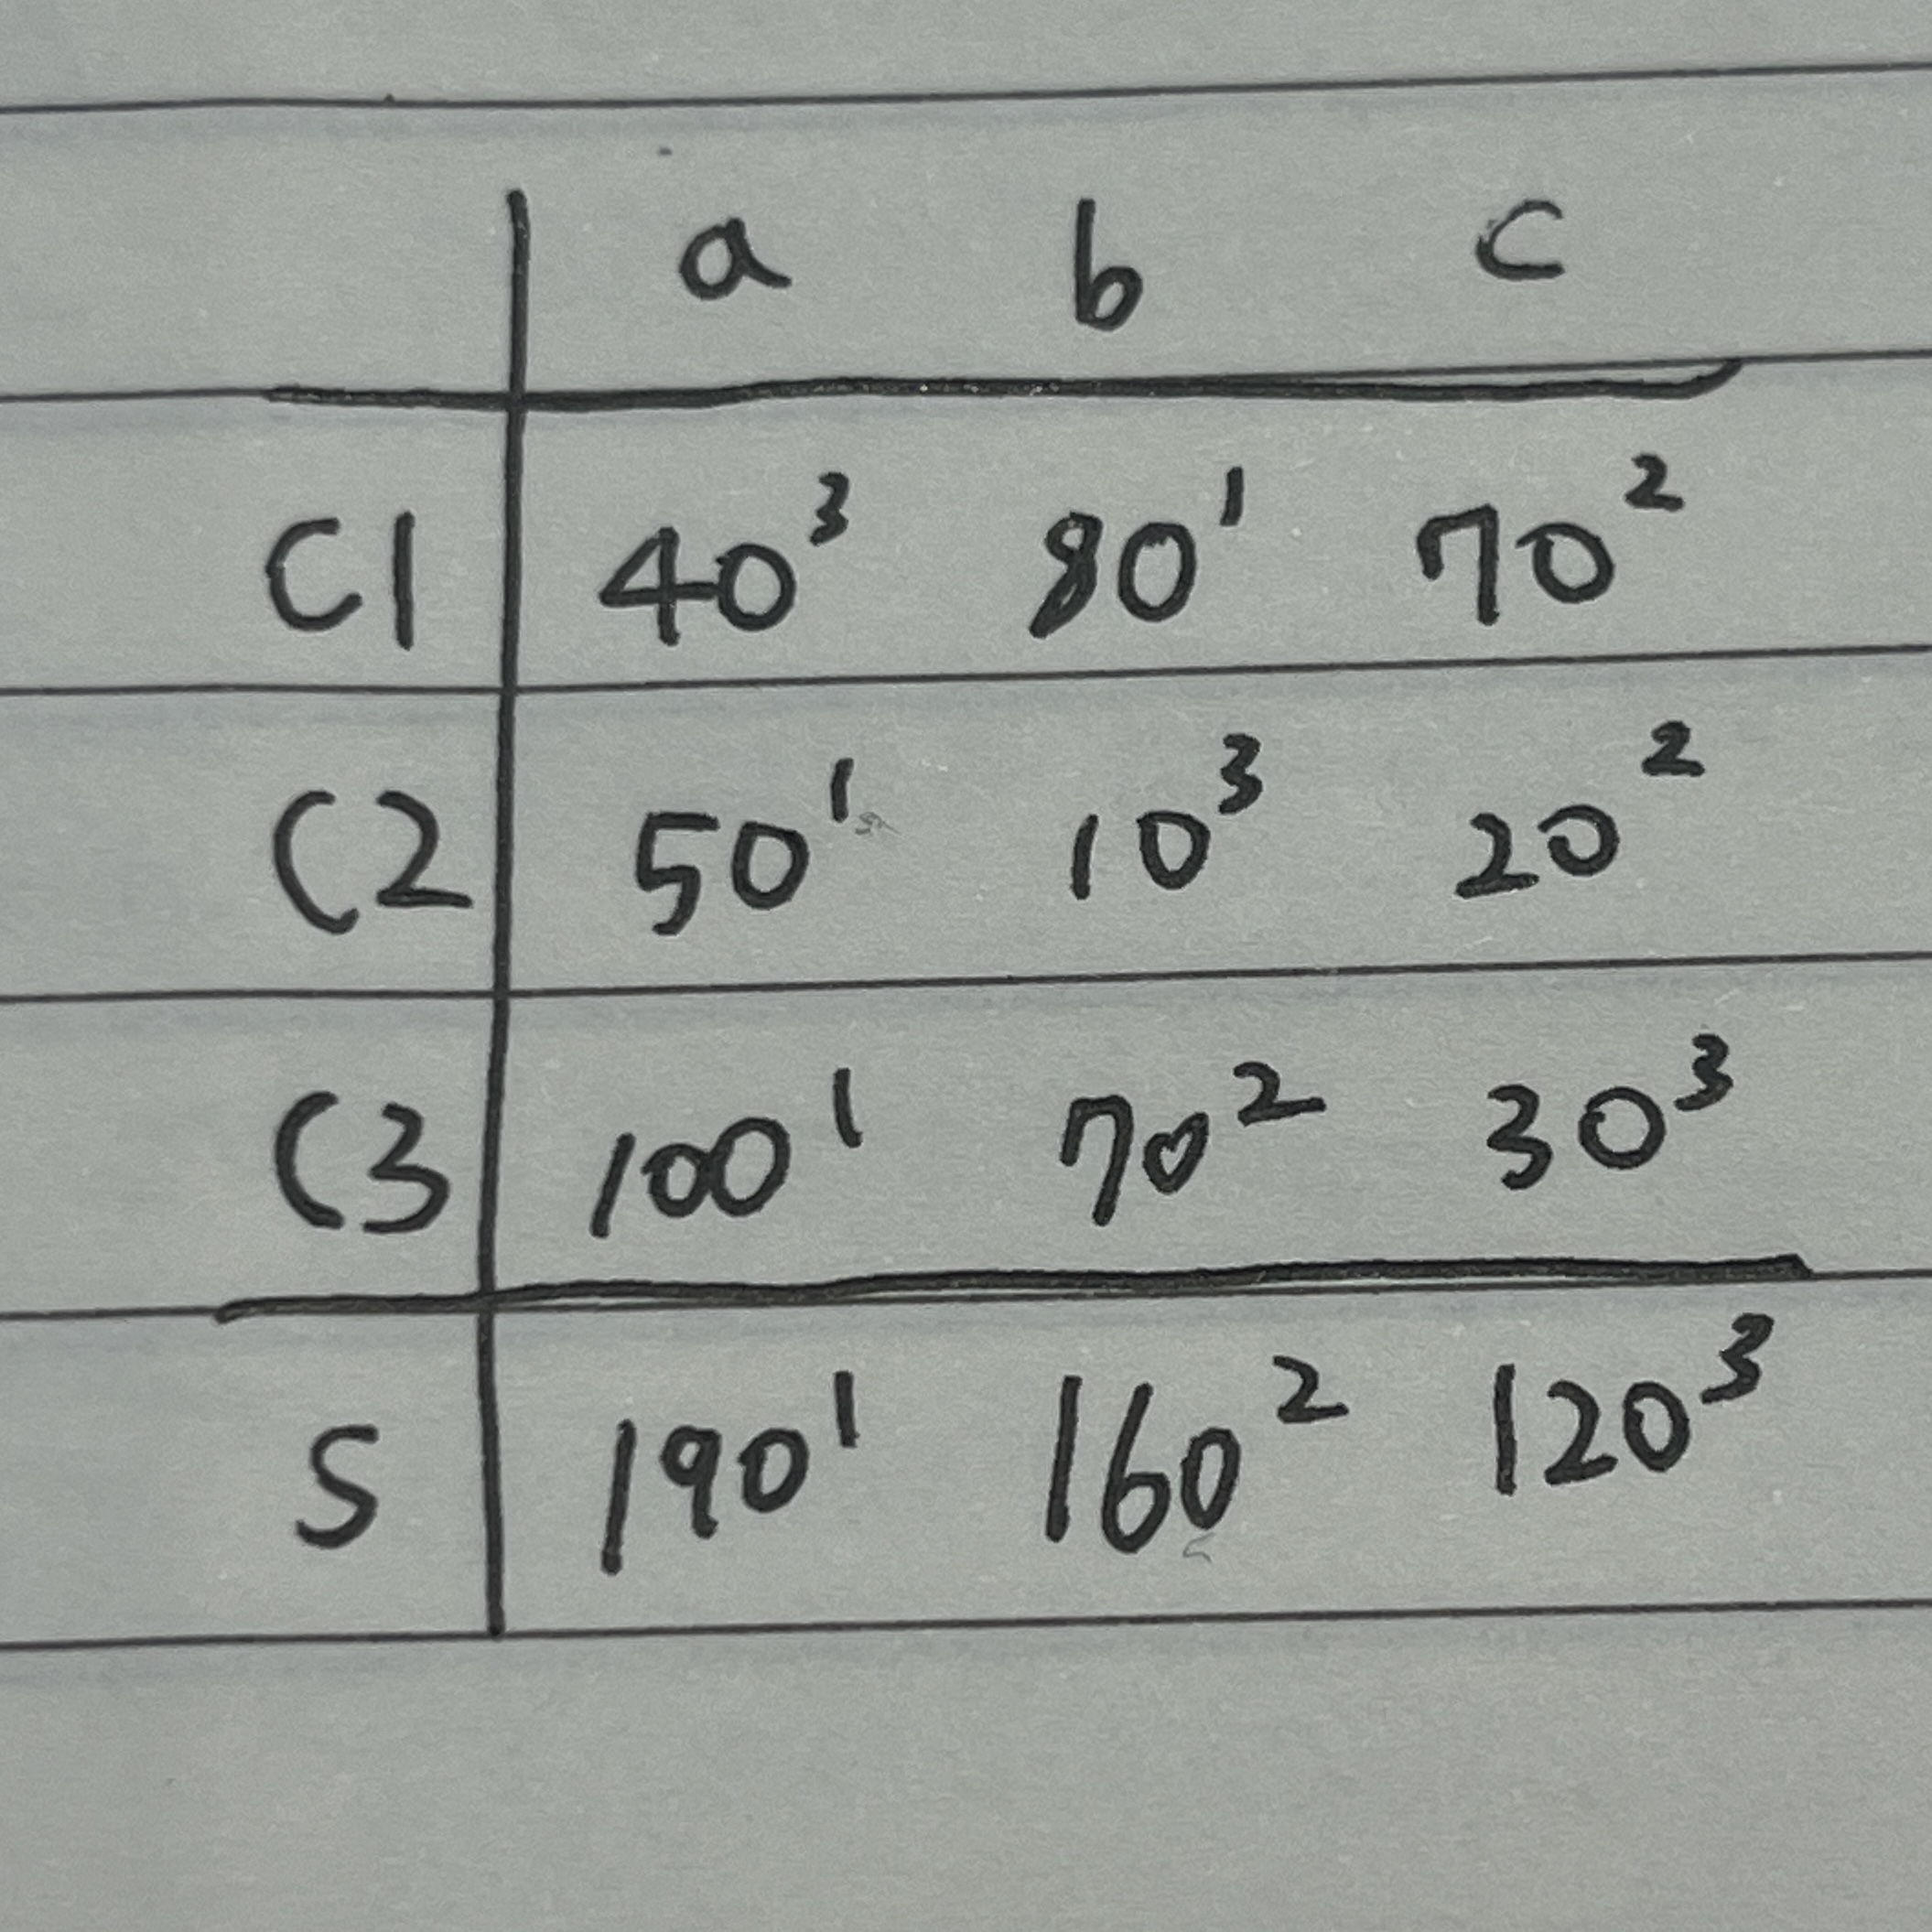 a b c
C1 40³ 80¹ 70²
C2 50¹ 10³ 20²
C3 100¹ 70² 30³
S 190¹ 160² 120³